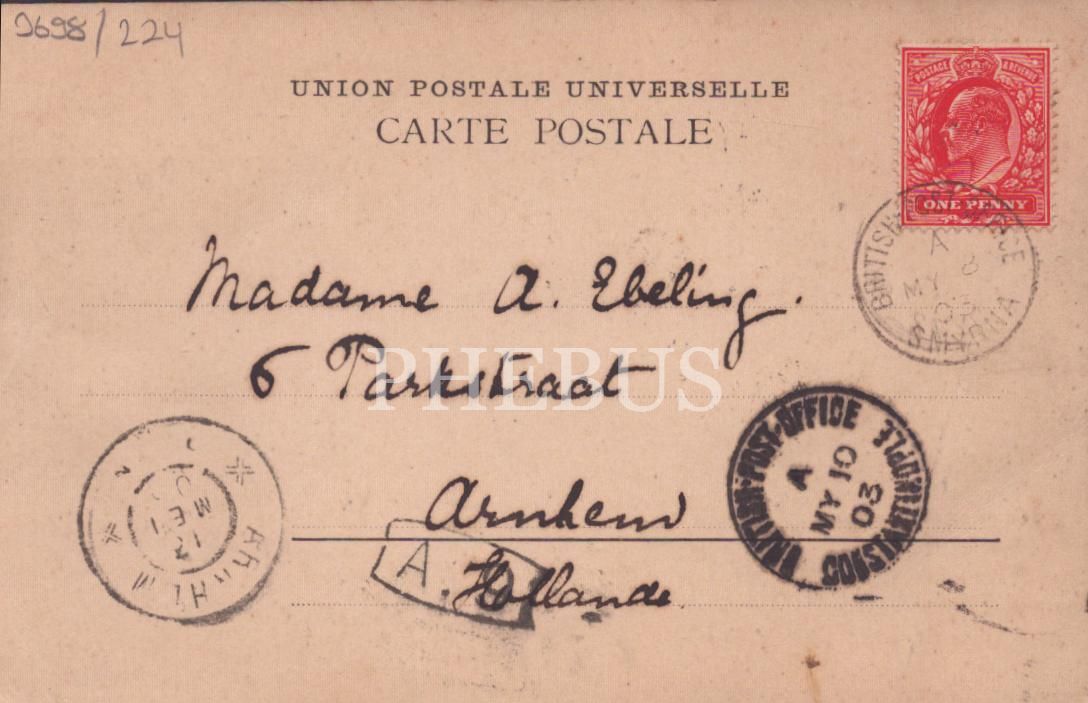 9698/224
UNION POSTALE UNIVERSELLE
CARTE POSTALE
POSTAGE & REVENUE
ONE PENNY
BRITISH POST OFFICE
A
MY 8
03
SMYRNA
Madame A. Ebeling.
6 Parkstraat
PHEBUS
BRITISH·POST·OFFICE
A
MY 10
03
CONSTANTINOPLE
ARNHEM
Arnhem
A
Hollande